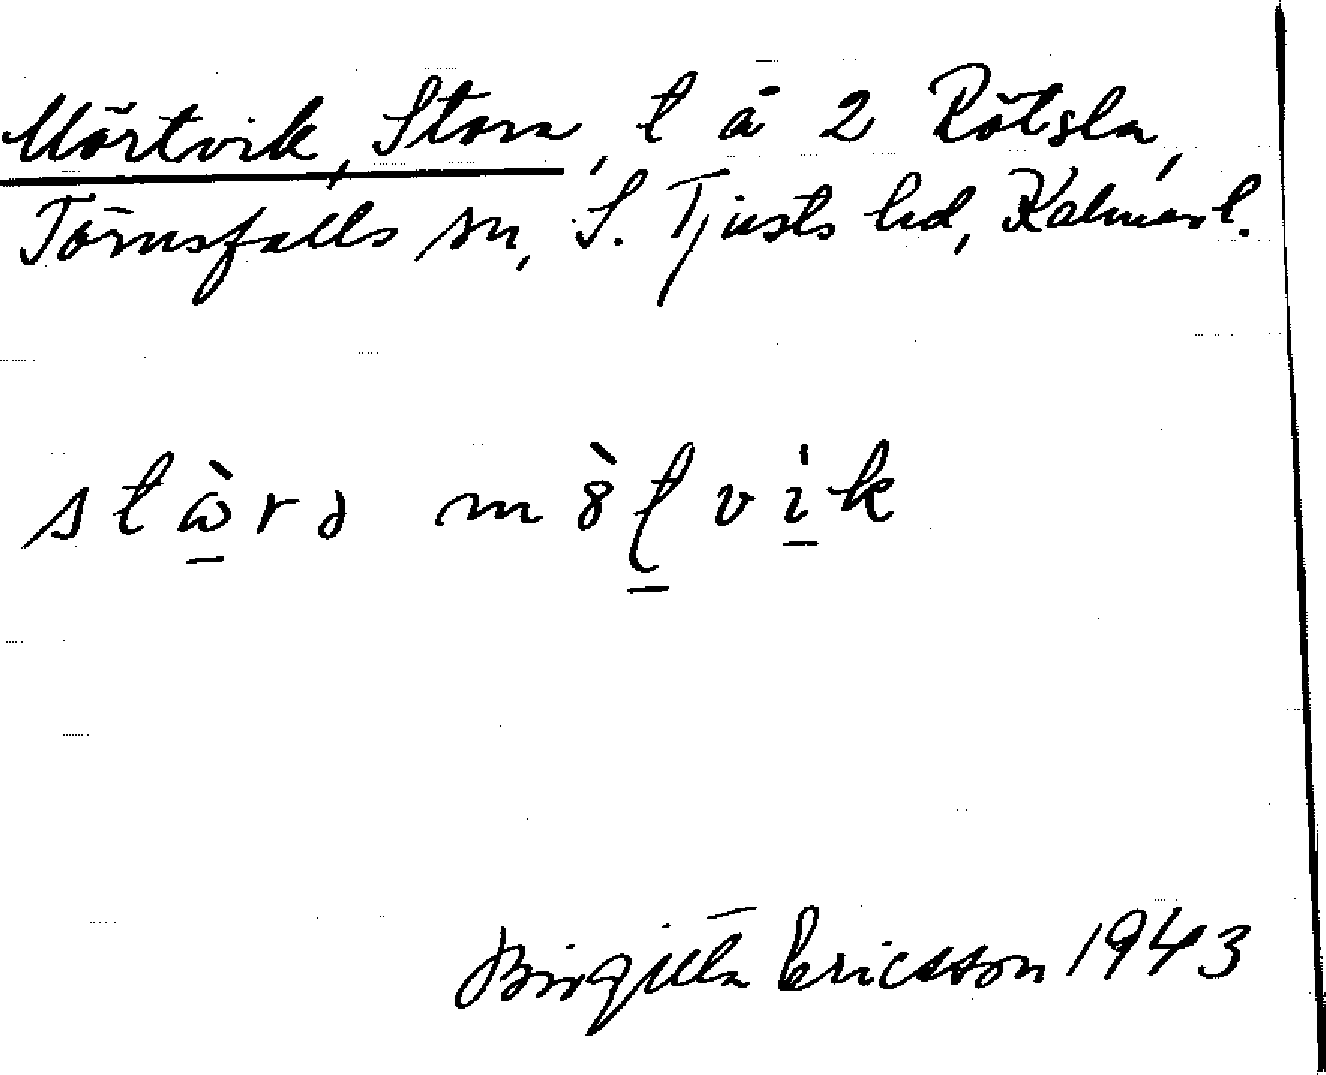 Mörtvik, Stora, t å 2 Rötsla,
Törnsfalls sn, S. Tjusts hd, Kalmar l.
stὼ̲rə mȣ̀ʈ̲vi̲̍k
Birgitta Ericsson 1943